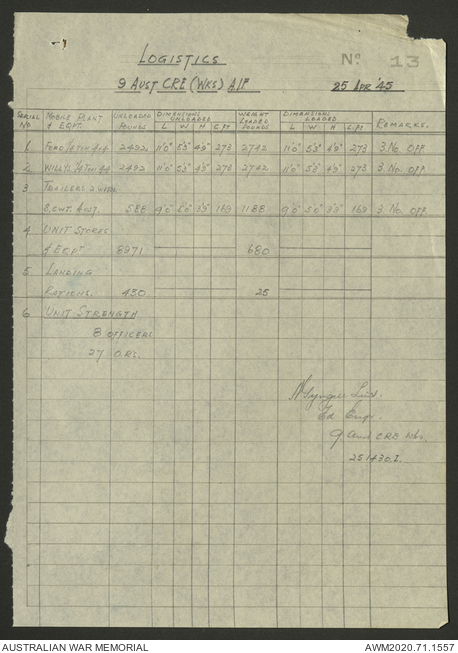 LOGISTICS
No 13
9 AUST CRE (WKS) AIF 25 APR '45
SERIAL No MOBILE PLANT & EQPT. UNLOADED POUNDS DIMENSIONS UNLOADED L W H C.FT WEIGHT LOADED POUNDS DIMENSIONS LOADED L W H C.FT REMARKS.
1 FORD 4x4 2492 11'0" 5'3" 4'9" 273 2742 11'0" 5'3" 4'9" 273 3 No. OFF
2 WILLYS 4x4 2492 11'0" 5'3" 4'9" 273 2742 11'0" 5'3" 4'9" 273 3 No OFF
3 TRAILERS 2 WHEEL
8 CWT. AUST. 588 9'0" 5'0" 3'9" 169 1188 9'0" 5'0" 3'9" 169 3 No OFF
4 UNIT STORES
& EQPT 8971 680
5 LANDING
RATIONS. 430 25
6 UNIT STRENGTH
8 OFFICERS
27 ORS.
Lieut.
9 Aust CRE Wks
25/4/30.I.
AUSTRALIAN WAR MEMORIAL AWM2020.71.1557